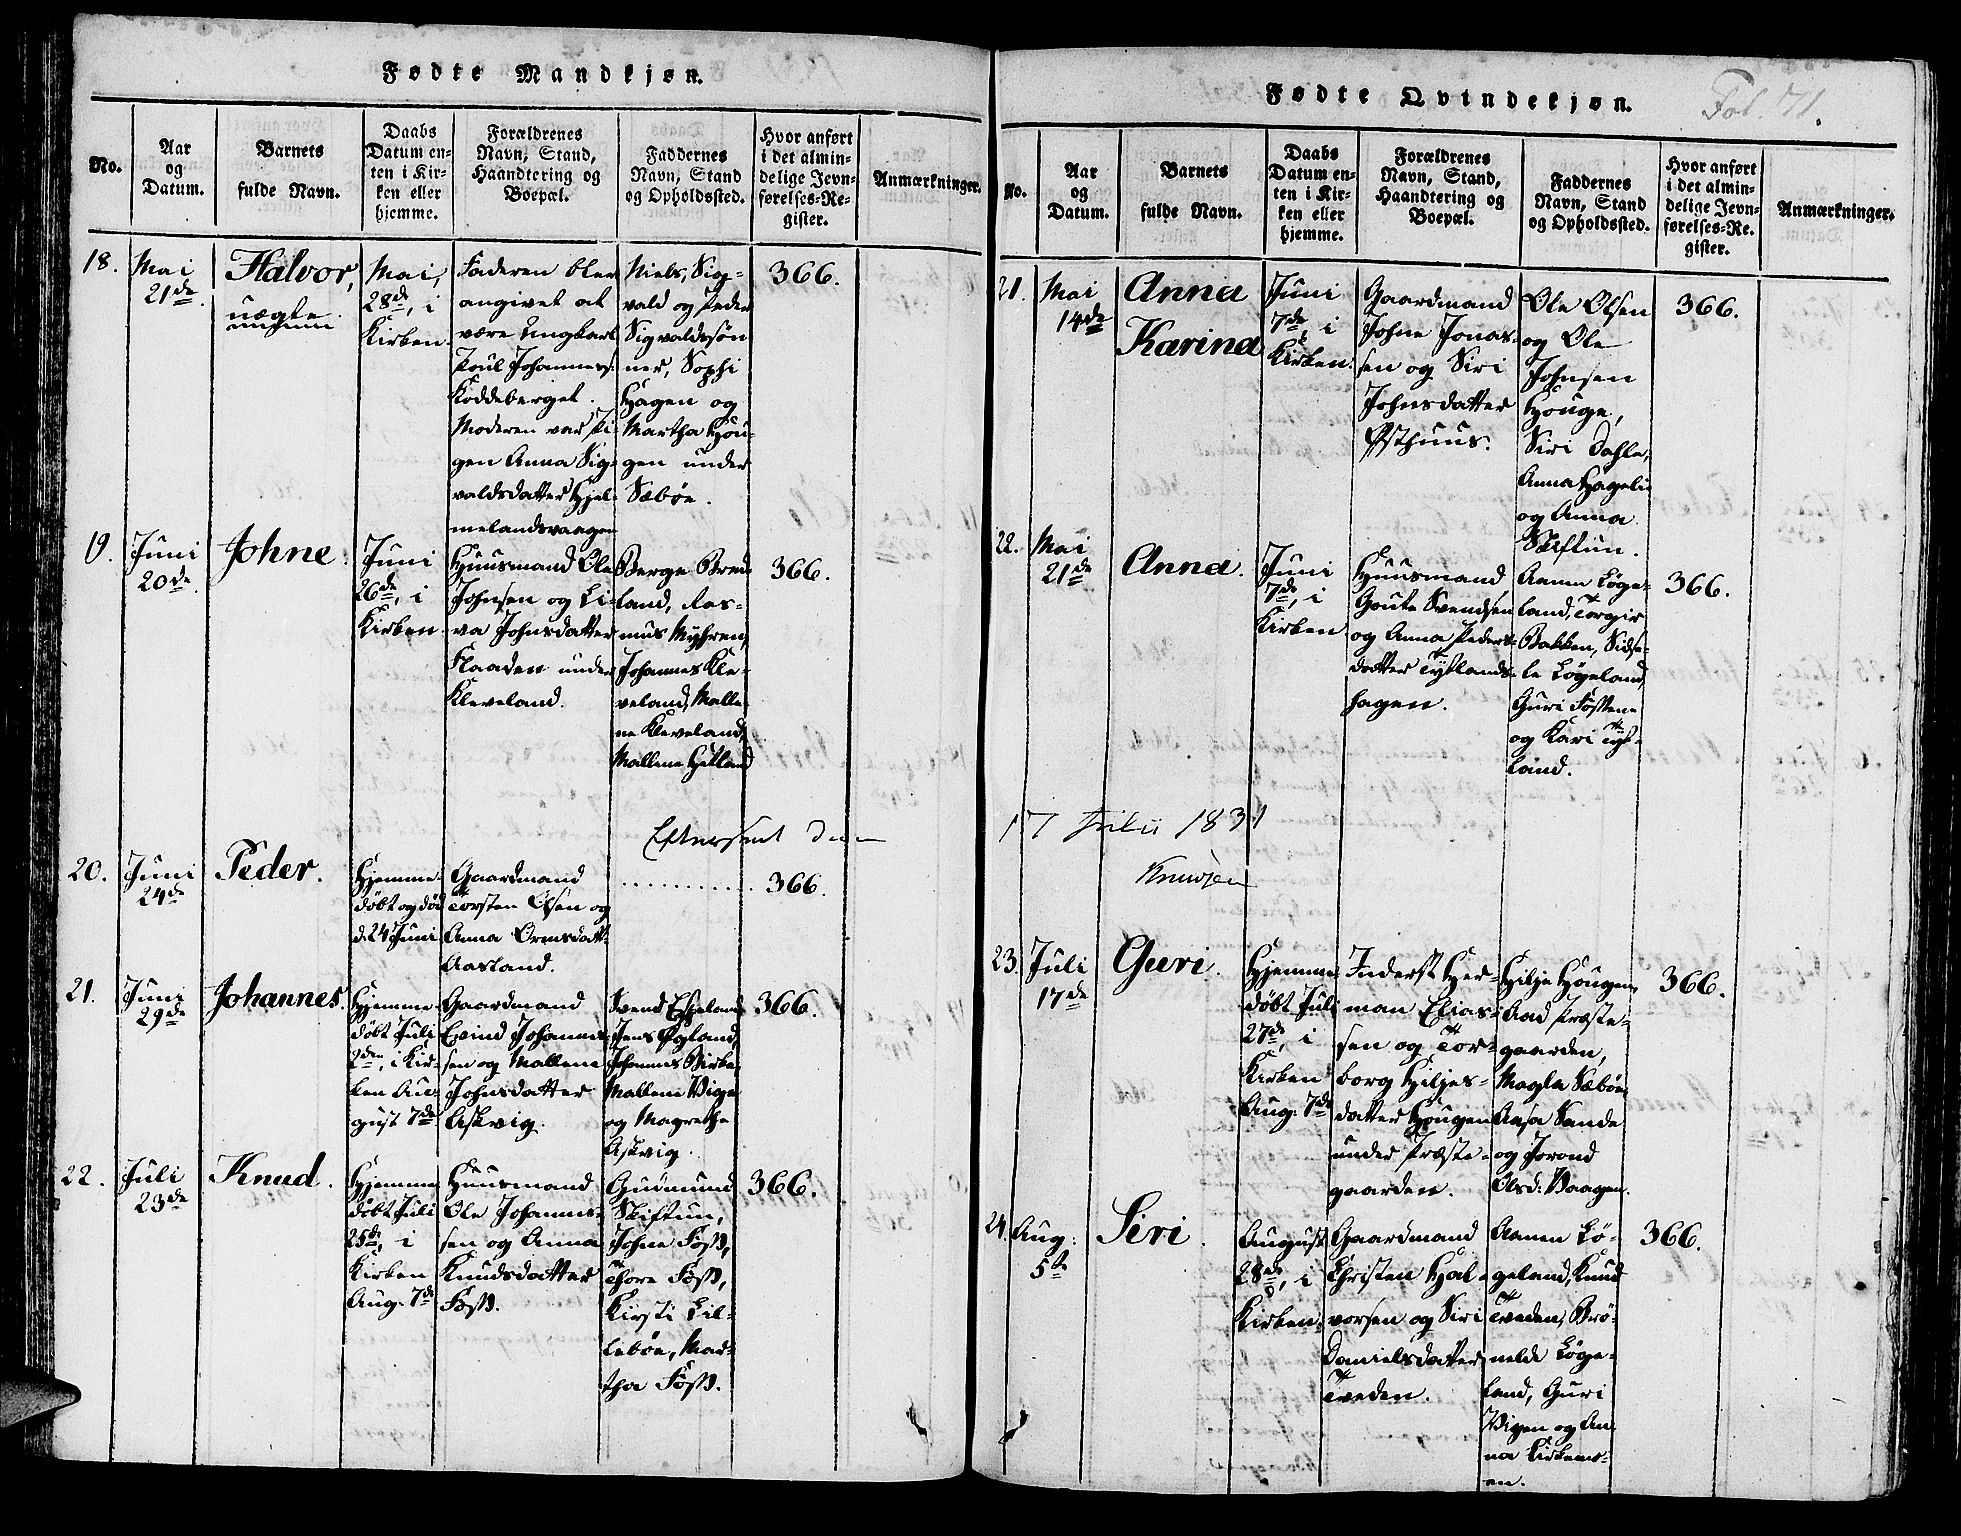 Fødte Mandkjøn.
No.
Aar
og
Datum.
Barnets
fulde Navn.
Daabs
Datum en-
ten i Kir-
ken eller
hjemme.
Forældrenes
Navn, Stand,
Haandtering og
Boepæl.
Faddernes
Navn, Stand
og Opholdssted.
Hvor anført
i det almin-
delige Jevn-
førelses-Re-
gister.
Anmærkninger.
18.
Mai
21de
Halvor,
uægte.
Mai,
28de, i
Kirken.
Faderen blev
angivet at
være Ungkarl
Poul Johanness:
Koddeberget.
Moderen var Pi-
gen Anna Sig-
valdsdatter Hjel-
melandsvaagen
Niels, Sig-
vald og Peder
Sigvaldssøn-
ner, Sophi
Hagen og
Martha Hou-
gen under
Sæbøe.
366.
19.
Juni
20de
Johne.
Juni
26de, i
Kirken.
Huusmand Ole
Johnsen og Li-
va Johnsdatter
Flaaden under
Kleveland.
Berge Bred-
land, Ras-
mus Myhren,
Johannes Kle-
veland, Malle-
ne Kleveland,
Mallene Hetland
366.
Efterseet den
20.
Juni
24de
Peder.
Hjemme-
døbt og død
d. 24 Juni
Gaardmand
Torsten Olsen og
Anna Ormsdatt:
Aasland.
............
366.
21.
Juni
29de
Johannes.
Hjemme-
døbt Juli
2den, i Kir-
ken Au-
gust 7de
Gaardmand
Evind Johannes-
sen og Mallene
Johnsdatter
Askvig.
Svend Espeland
Jens Øgland,
Johannes Birke,
Mallene Vige
og Magrethe
Askvig.
366.
22.
Juli
23de
Knud.
Hjemme
døbt Juli
25de, i
Kirken
Aug. 7de
Huusmand
Ole Johannes-
sen og Anna
Knudsdatter
Foss.
Gudmund
Skiftun,
Johne Foss,
Thore Foss,
Kirsti Lil-
lebøe, Mar-
tha Foss.
366.
Fødte Qvindekjøn.
Fol. 71.
No.
Aar
og
Datum.
Barnets
fulde Navn.
Daabs
Datum en-
ten i Kir-
ken eller
hjemme.
Forældrenes
Navn, Stand,
Haandtering og
Boepæl.
Faddernes
Navn, Stand
og Opholdssted.
Hvor anført
i det almin-
delige Jevn-
førelses-Re-
gister.
Anmærkninger.
21.
Mai
14de
Anna
Karina
Juni
7de, i
Kirken.
Gaardmand
Johne Jonas-
sen og Siri
Johnsdatter
Østhuus.
Ole Olsen
og Ole
Johnsen
Houge,
Siri Dahle,
Anna Hagelie
og Anna
Skiftun.
366.
22.
Mai
21de
Anna.
Juni
7de, i
Kirken
Huusmand
Goute Svendsen
og Anna Peders-
datter Tytlands-
hagen.
Aamen Løge-
land, Torgir
Bakken, Sidse-
le Løgeland,
Guri Fostene
og Kari Tyt-
land.
366.
17 Julii 1831
Knudsen
23.
Juli
17de
Guri.
Hjemme-
døbt Juli
27de, i
Kirken
Aug: 7de
Inderst Her-
man Elias-
sen og Tor-
borg Hiljes-
datter Hougen
under Præste-
gaarden.
Hilje Hougen,
Aad Præste-
gaarden,
Magla Sæbøe,
Aasa Sande
og Jorond
Olsd: Vaagen.
366.
24.
Aug:
5te
Siri.
August
28de, i
Kirken.
Gaardmand
Christen Hal-
vorsen og Siri
Danielsdatter
Tveden.
Aamen Lø-
geland, Knud
Tveden, Brø-
nelde Løge-
land, Guri
Vigen og An-
na Kirkemo-
en.
366.